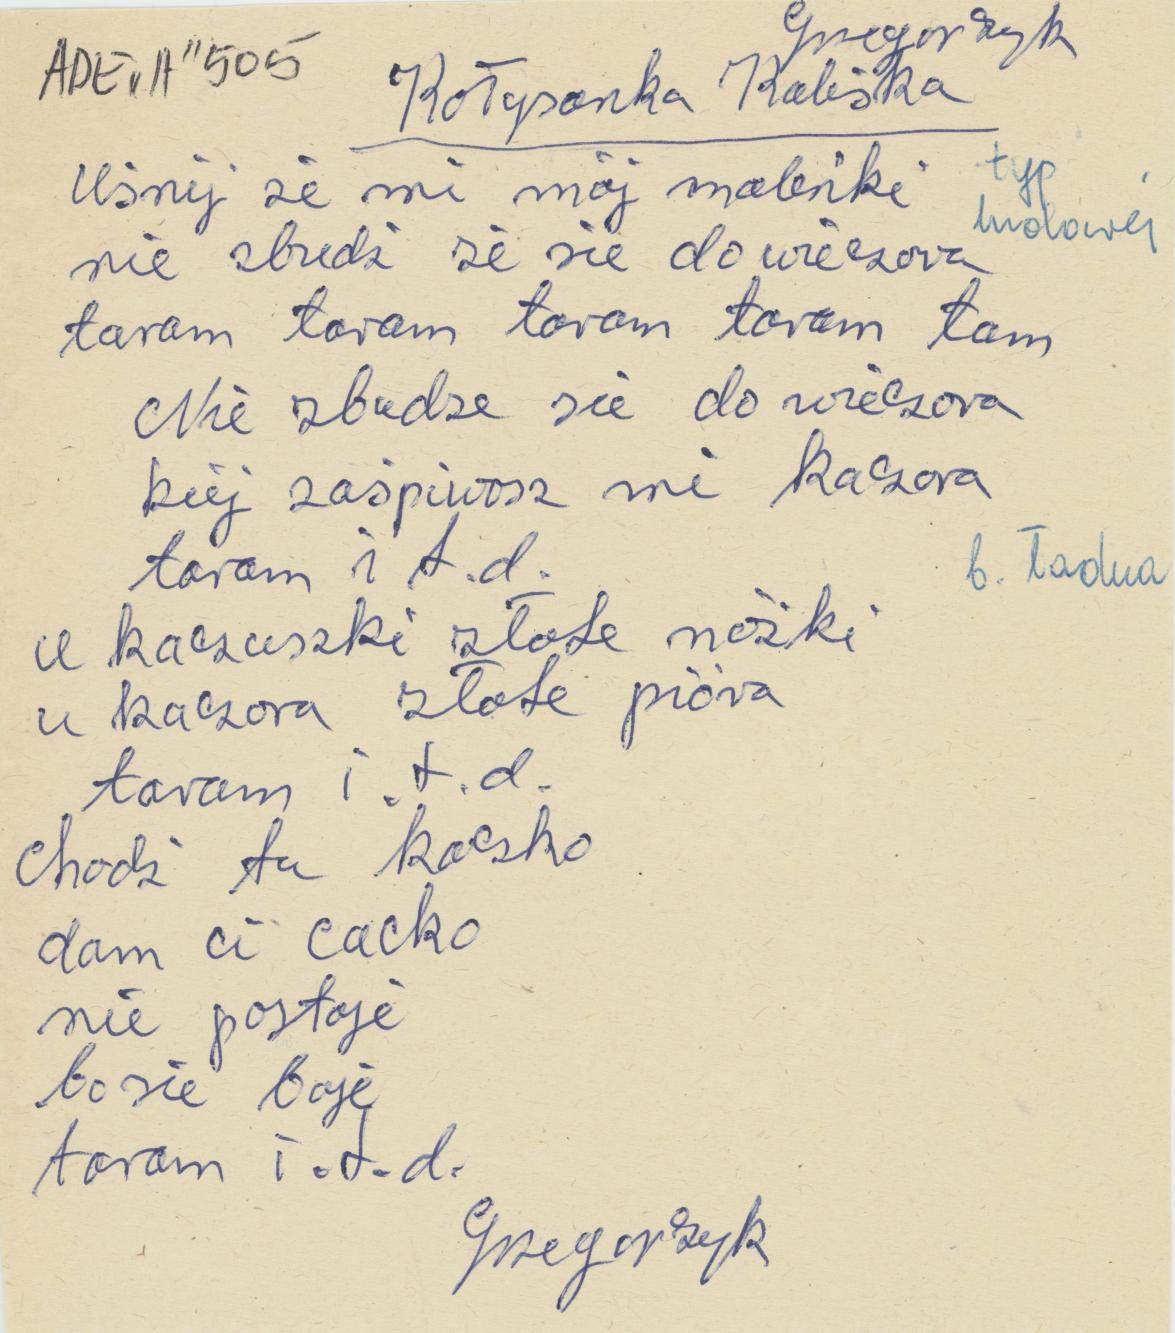 Grzegorzyk
ADEiA "505
Kołysanka Kaliska
Uśnij zé mi mój maleńki
typ
ludowej
nie zbudź zé sie do wieczora
taram taram taram taram tam
Nie zbudze sie do wieczora
kiej zaśpiwosz mi kaczora
taram i t.d.
b. ładna
u kaczuszki złote nóżki
u kaczora złote pióra
taram i.t.d.
Chodź tu kaczko
dam ci cacko
nie postoje
bo sie boje
taram i.t.d.
Grzegorzyk